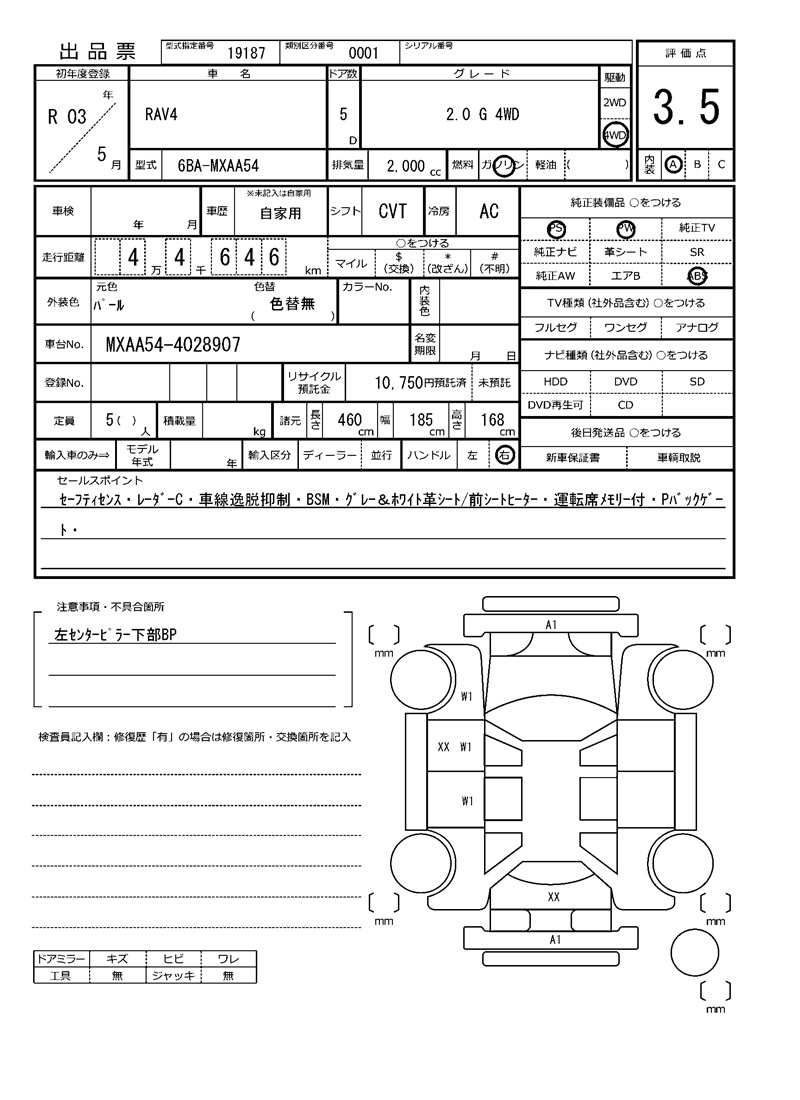 出品票 型式指定番号 19187 類別区分番号 0001 シリアル番号
評価点
3.5
内装 A B C
初年度登録 車名 ドア数 グレード 駆動
R 03 年 5 月 RAV4 5 D 2.0 G 4WD 2WD 4WD
型式 6BA-MXAA54 排気量 2,000 cc 燃料 ガソリン 軽油 ( )
車検 年 月 車歴 ※未記入は自家用 自家用 シフト CVT 冷房 AC
走行距離 4 万 4 千 6 4 6 km ○をつける
マイル $ (交換) * (改ざん) # (不明)
外装色 元色 パール 色替 ( 色替無 ) カラーNo. 内装色
車台No. MXAA54-4028907 名変期限 月 日
登録No. リサイクル預託金 10,750円預託済 未預託
定員 5 ( ) 人 積載量 kg 諸元 長さ 460 cm 幅 185 cm 高さ 168 cm
輸入車のみ⇒ モデル年式 年 輸入区分 ディーラー 並行 ハンドル 左 右
純正装備品 ○をつける
PS PW 純正TV
純正ナビ 革シート SR
純正AW エアB ABS
TV種類 (社外品含む) ○をつける
フルセグ ワンセグ アナログ
ナビ種類 (社外品含む) ○をつける
HDD DVD SD
DVD再生可 CD
後日発送品 ○をつける
新車保証書 車輌取説
セールスポイント
セーフティセンス・レーダーC・車線逸脱抑制・BSM・グレー&ホワイト革シート/前シートヒーター・運転席メモリー付・Pバックゲー
ト・
注意事項・不具合箇所
左センターピラー下部BP
検査員記入欄：修復歴「有」の場合は修復箇所・交換箇所を記入
ドアミラー キズ ヒビ ワレ
工具 無 ジャッキ 無
A1
mm mm
W1
XX W1
W1
XX
mm mm
A1
mm